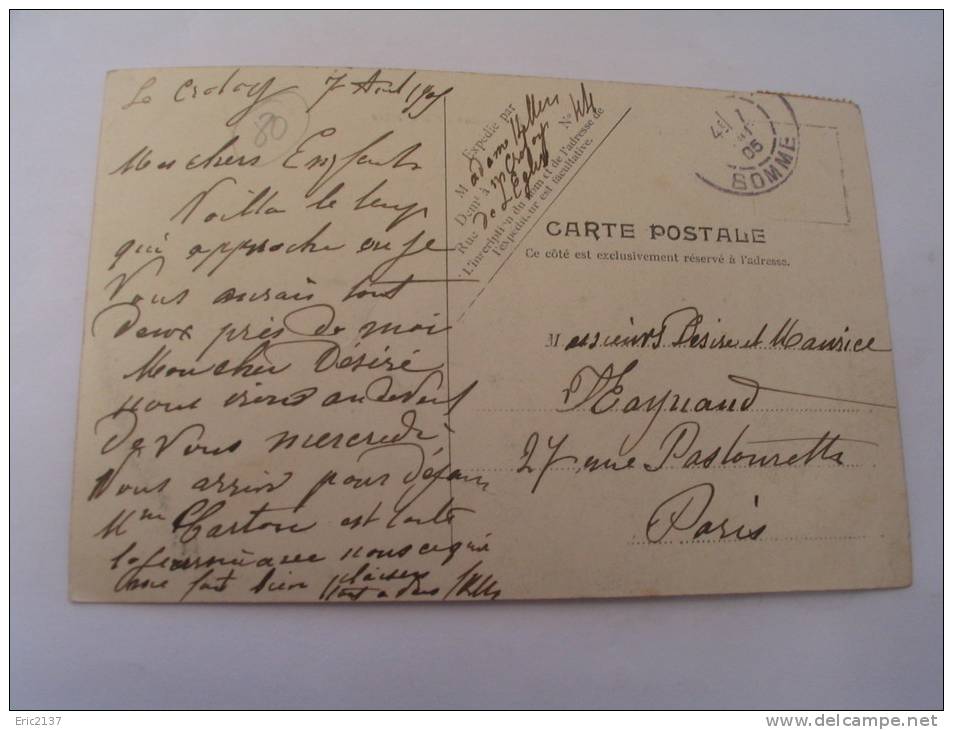 Le Crotoy 7 Aout 1905
80
Mes chers Enfants
Voilla le temp
qui approche ou je
Vous aurais tout
deux près de moi
Mon cher Désiré
nous irons au devant
de Vous mercredi
Vous arrivé pour
Mme Carton est toute
la journee avec nous ce qui
me fait bien plaisir
tout a vous
Expédié par
M adame
Demt à Crotoy
Rue de L'Eglise No 44
L'inscription du nom et de l'adresse de
l'expéditeur est facultative.
05
SOMME
CARTE POSTALE
Ce côté est exclusivement réservé à l'adresse.
Messieurs Désire et Maurice
Raynaud
27 rue Pastourelle
Paris
Eric2137
www.delcampe.net